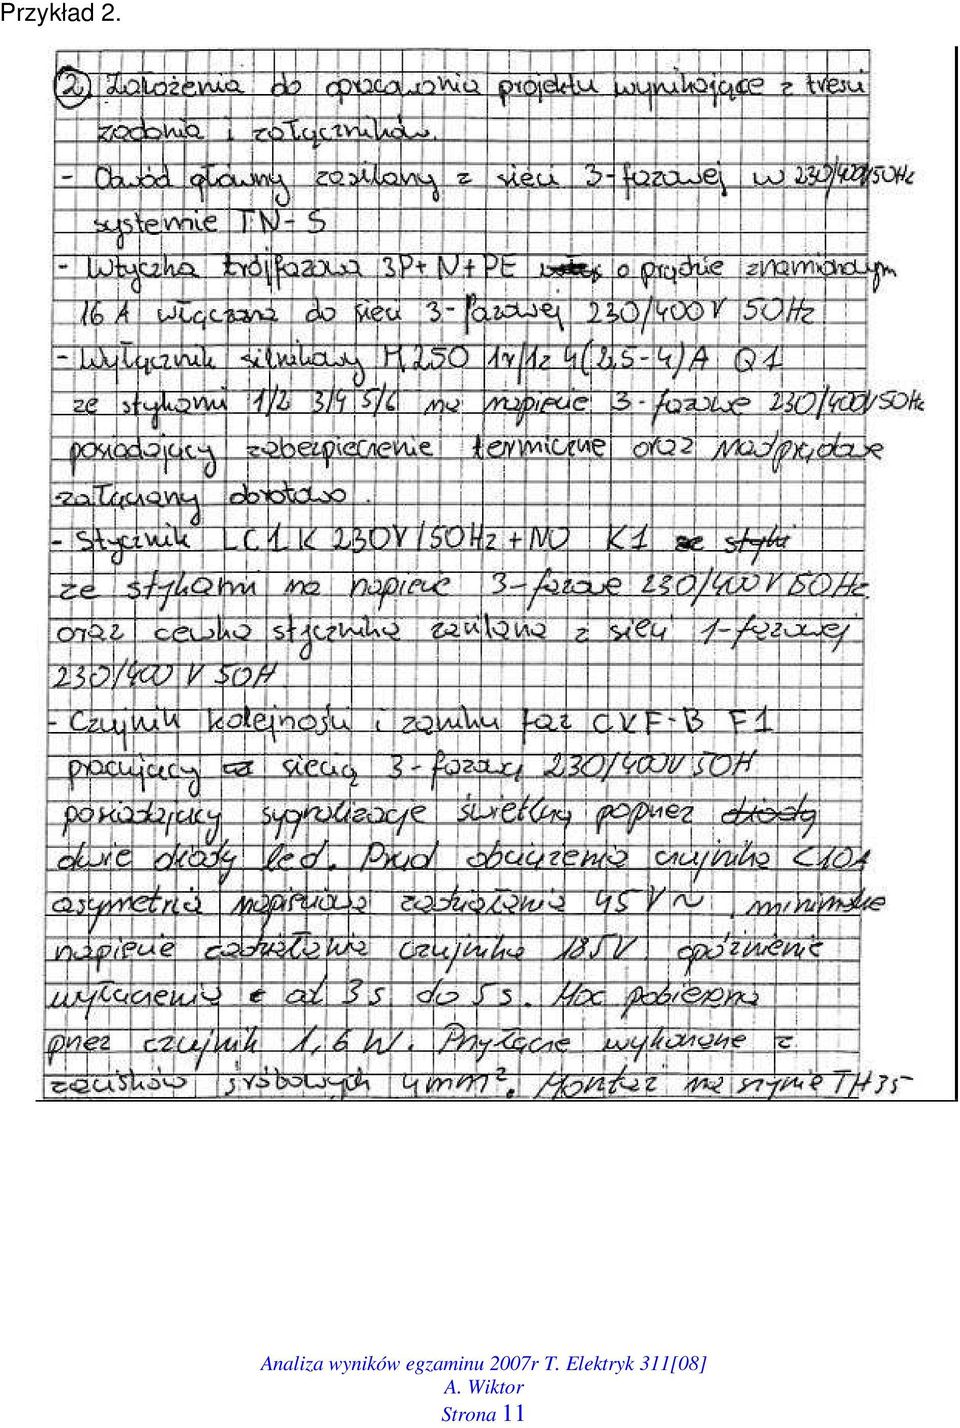 Przykład 2.
2) Założenia do opracowania projektu wynikające z treści
zadania i załączników.
- Obwód główny zasilany z sieci 3-fazowej w 230/400/50Hz
systemie TN-S
- Wtyczka trójfazowa 3P+N+PE o prądzie znamionowym
16 A włączana do sieci 3-fazowej 230/400V 50Hz
- Wyłącznik silnikowy M250 1r/1z 4(2,5-4)A Q1
ze stykami 1/2 3/4 5/6 na napięcie 3-fazowe 230/400V50Hz
posiadający zabezpieczenie termiczne oraz nadprądowe
załączany obrotowo.
- Stycznik LC1K 230V/50Hz+NO K1 ze styki
ze stykami na napięcie 3-fazowe 230/400V 50Hz
oraz cewka stycznika zasilana z sieci 1-fazowej
230/400 V 50H
- Czujnik kolejności i zaniku faz CKF-B F1
pracujący z siecią 3-fazową 230/400V 50H
posiadający sygnalizację świetlną poprzez diody
dwie diody led. Prąd obciążenia czujnika <10A
asymetria napięciowa zadziałania 45V~ minimalne
napięcie zadziałania czujnika 185V opóźnienie
wyłączenia od 3s do 5s. Moc pobierana
przez czujnik 1,6W. Przyłącze wykonane z
zacisków śrubowych 4mm². Montaż na szynie TH35
Analiza wyników egzaminu 2007r T. Elektryk 311[08]
A. Wiktor
Strona 11